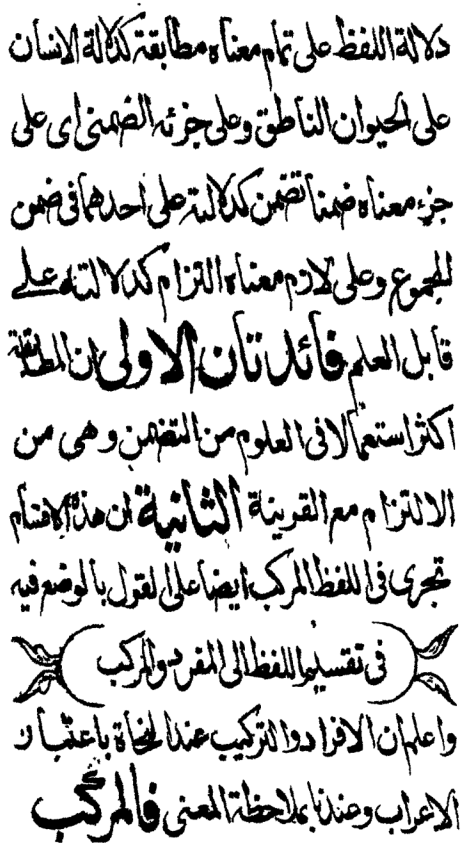 دلالة اللفظ على تمام معناه مطابقة كدلالة الانسان
على الحيوان الناطق وعلى جزئه الضمنى اى على
جزء معناه ضمنا تضمن كدلالته على احدهما فى ضمن
المجموع وعلى لازم معناه التزام كدلالته على
قابل العلم فائدتان الاولى ان المطابقة
اكثر استعمالا فى العلوم من التضمن وهى من
الالتزام مع القرينة الثانية ان هذه الاقسام
تجرى فى اللفظ المركب ايضا على القول بالوضع فيه
فى تقسيم اللفظ الى المفرد والمركب
واعلم ان الافراد والتركيب عند النحاة باعتبار
الاعراب وعندنا بملاحظة المعنى فالمركب